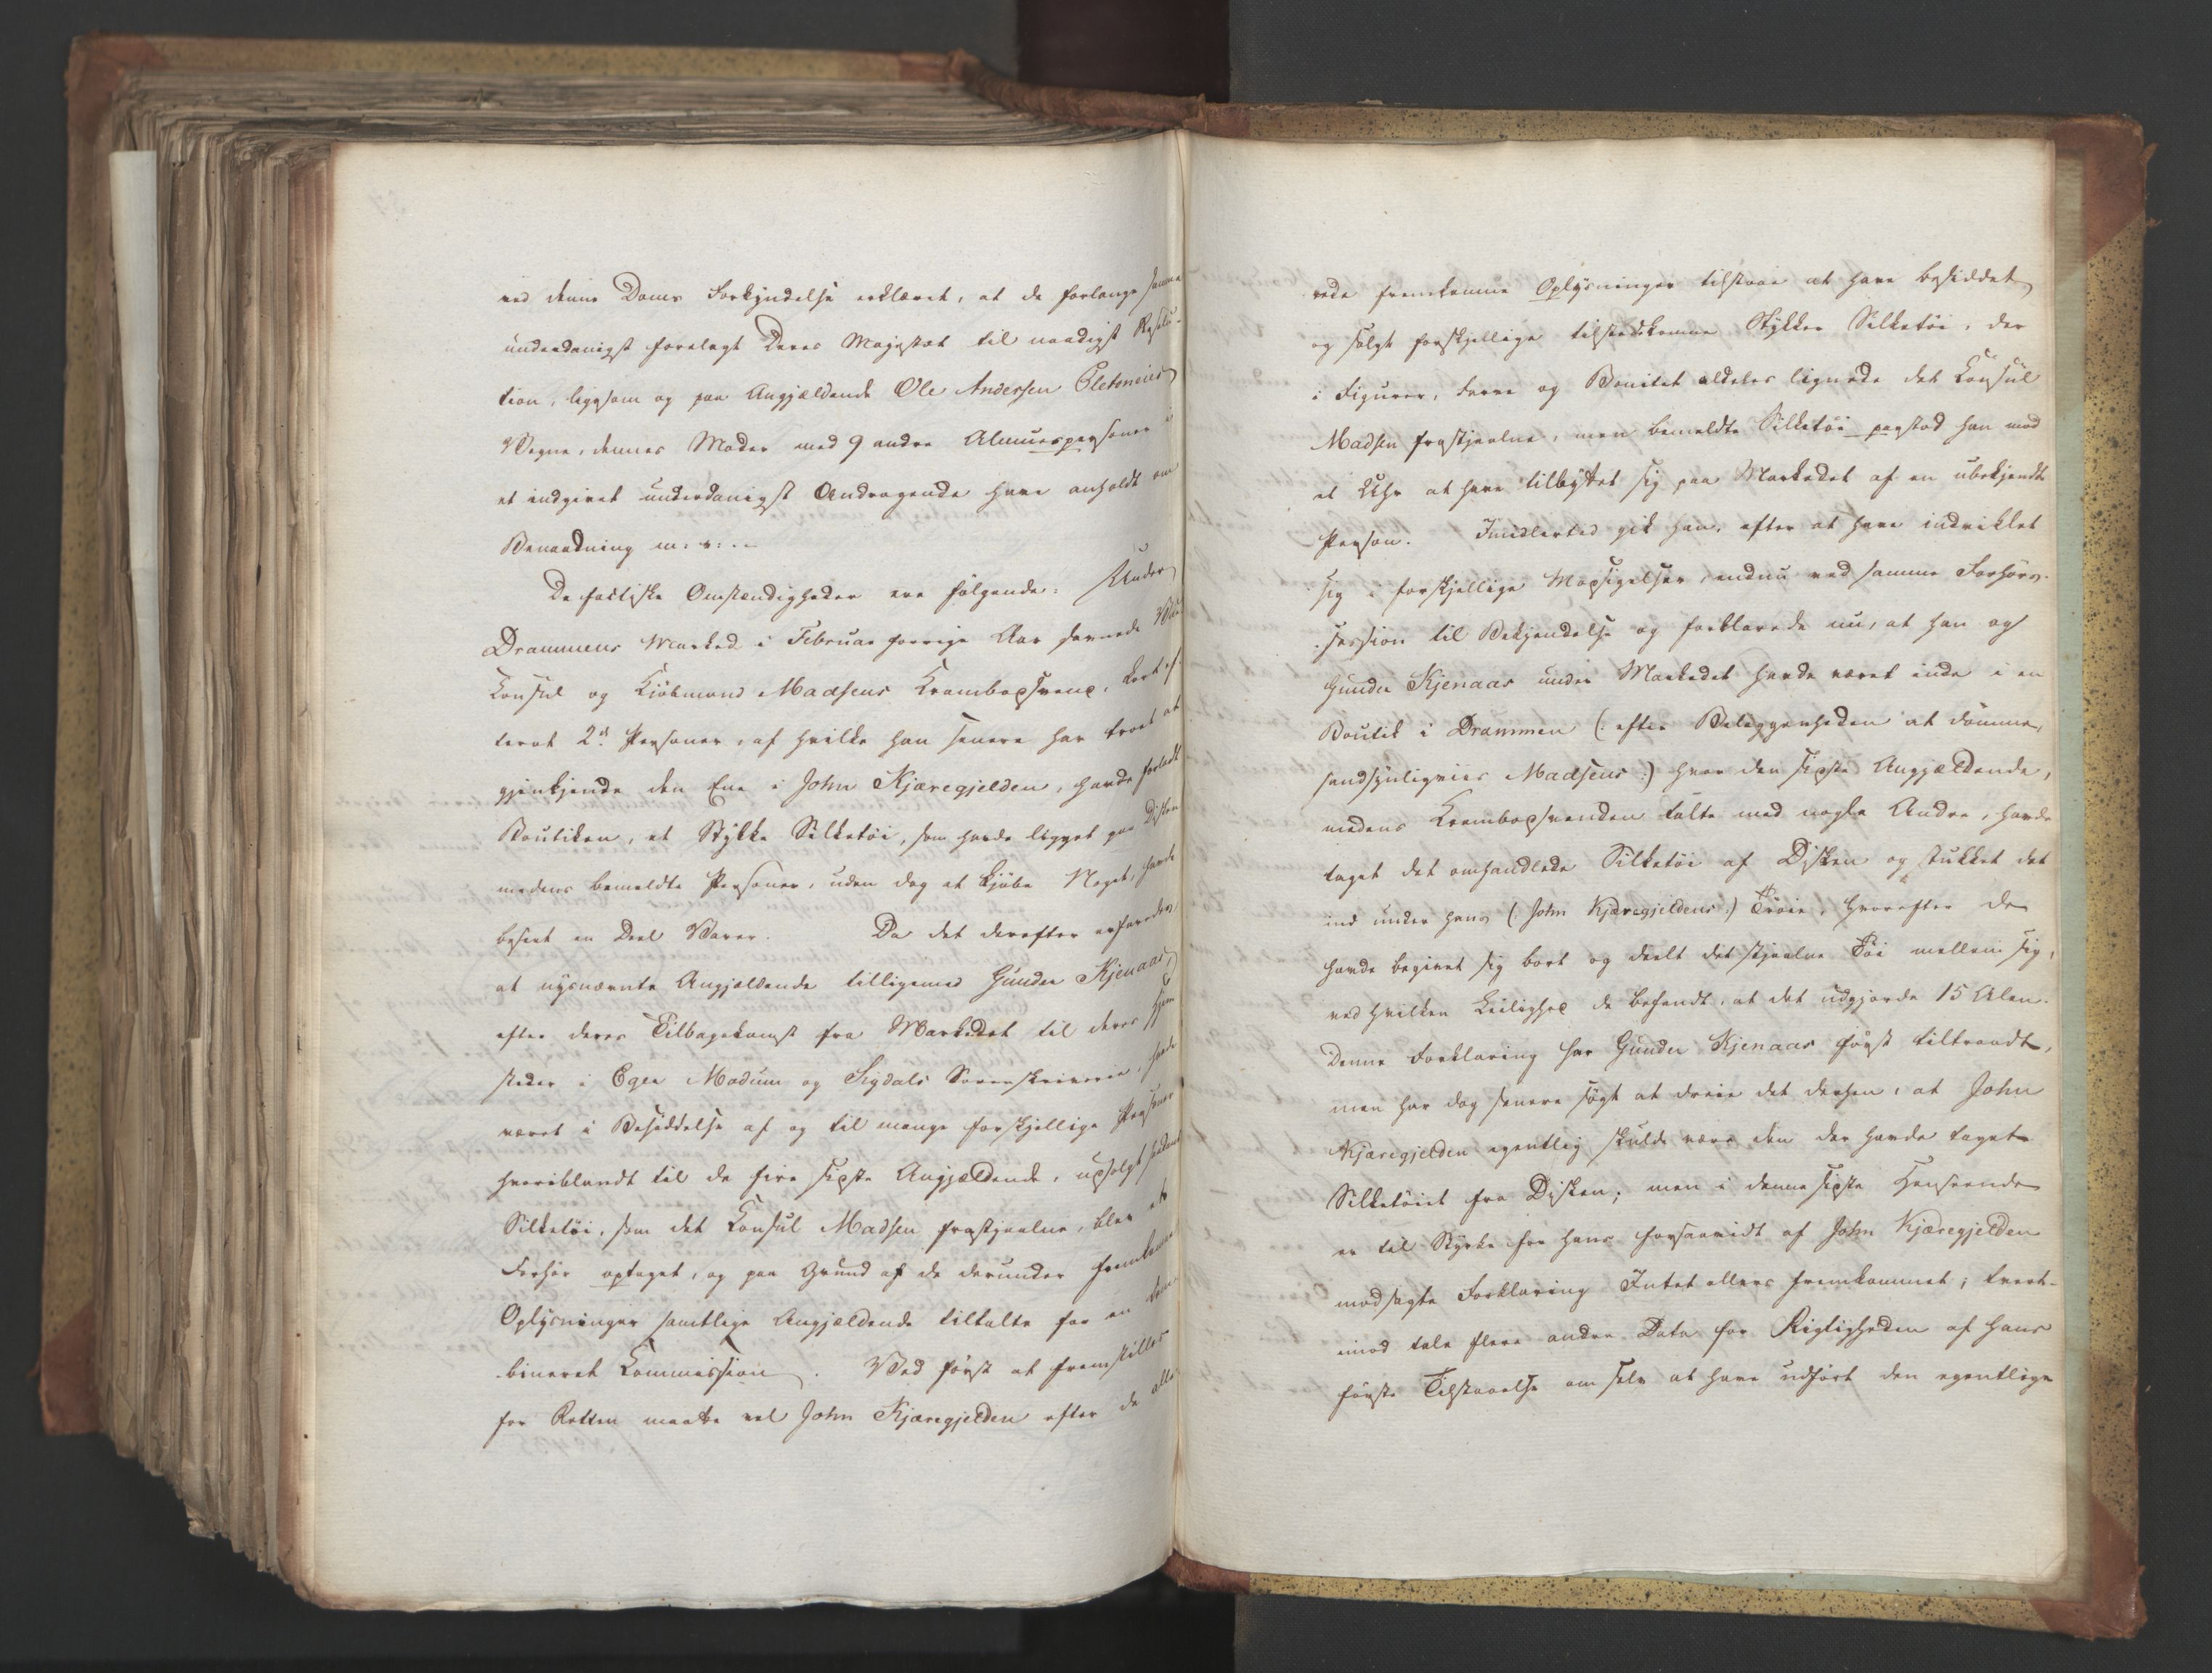 ved denne Doms Forkyndelse erklæret, at de forlange samme
underdanigst forelagt Deres Majestæt til naadigst Resolu-
tion, ligesom og paa Angjældende Ole Andersen Eletmeies
Vegne, dennes Moder med 9 andre Almuespersoner i
et indgivet underdanigst Andragende have anholdt om
Benaadning m: v: . –
De factiske Omstændigheder ere følgende: Under
Drammens Marked i Februar forrige Aar savnede
Consul og Kjøbmand Madsens Krambodsvend, kort ef-
terat 2de Personer, af hvilke han senere har troet at
gjenkjende den Ene i John Kjæregjelden, havde forladt
Boutiken, et Stykke Silketøi, som havde ligget paa Disken
medens bemeldte Personer, uden dog at kjøbe Noget, havde
beseet en Deel Varer. Da det derefter erfaredes,
at nysnævnte Angjældende tilligemed Gunder Kjenaas,
efter deres Tilbagekomst fra Markedet til deres Hjem-
steder i Eger Modum og Sigdals Sorenskriverie, havde
været i Besiddelse af og til mange forskjellige Personer
hvoriblandt til de fire sidste Angjældende, udsolgt saadant
Silketøi, som det Consul Madsen frastjaalne, blev et
Forhør optaget, og paa Grund af de derunder fremkomne
Oplysninger samtlige Angjældende tiltalte for en com-
bineret Commission. Ved først at fremstilles
for Retten maatte vel John Kjæregjelden efter de alle-
rede fremkomne Oplysninger tilstaae at have besiddet
og solgt forskjellige tilstedekomne Stykker Silketøi, der
i Figurer, Farve og Bonitet aldeles lignede det Consul
Madsen frastjaalne, men bemeldte Silketøi paastod han mod
et Uhr at have tilbyttet sig paa Markedet af en ubekjendt
Person. Imidlertid gik han, efter at have indviklet
sig i forskjellige Modsigelser, endnu ved samme Forhørs-
session til Bekjendelse og forklarede nu, at han og
Gunder Kjenaas under Markedet havde været inde i en
Boutik i Drammen (: efter Beliggenheden at dømme,
sandsynligviis Madsens :) hvor den sidste Angjældende,
medens Krambodsvenden talte med nogle Andre, havde
taget det omhandlede Silketøi af Disken og stukket det
ind under hans (: John Kjæregjeldens :) Trøie, hvorefter de
havde begivet sig bort og deelt det stjaalne Tøi mellem sig,
ved hvilken Leilighed de befandt, at det udgjorde 15 Alen.
Denne Forklaring har Gunder Kjenaas først tiltraadt,
men har dog senere søgt at dreie det derhen, at John
Kjæregjelden egentlig skulde være den der havde taget
Silketøiet fra Disken; men i denne sidste Henseende
er til Styrke for hans forsaavidt af John Kjæregjelden
modsagte Forklaring Intet ellers fremkommet; tvert-
imod tale flere andre Data for Rigtigheden af hans
første Tilstaaelse om selv at have udført den egentlige